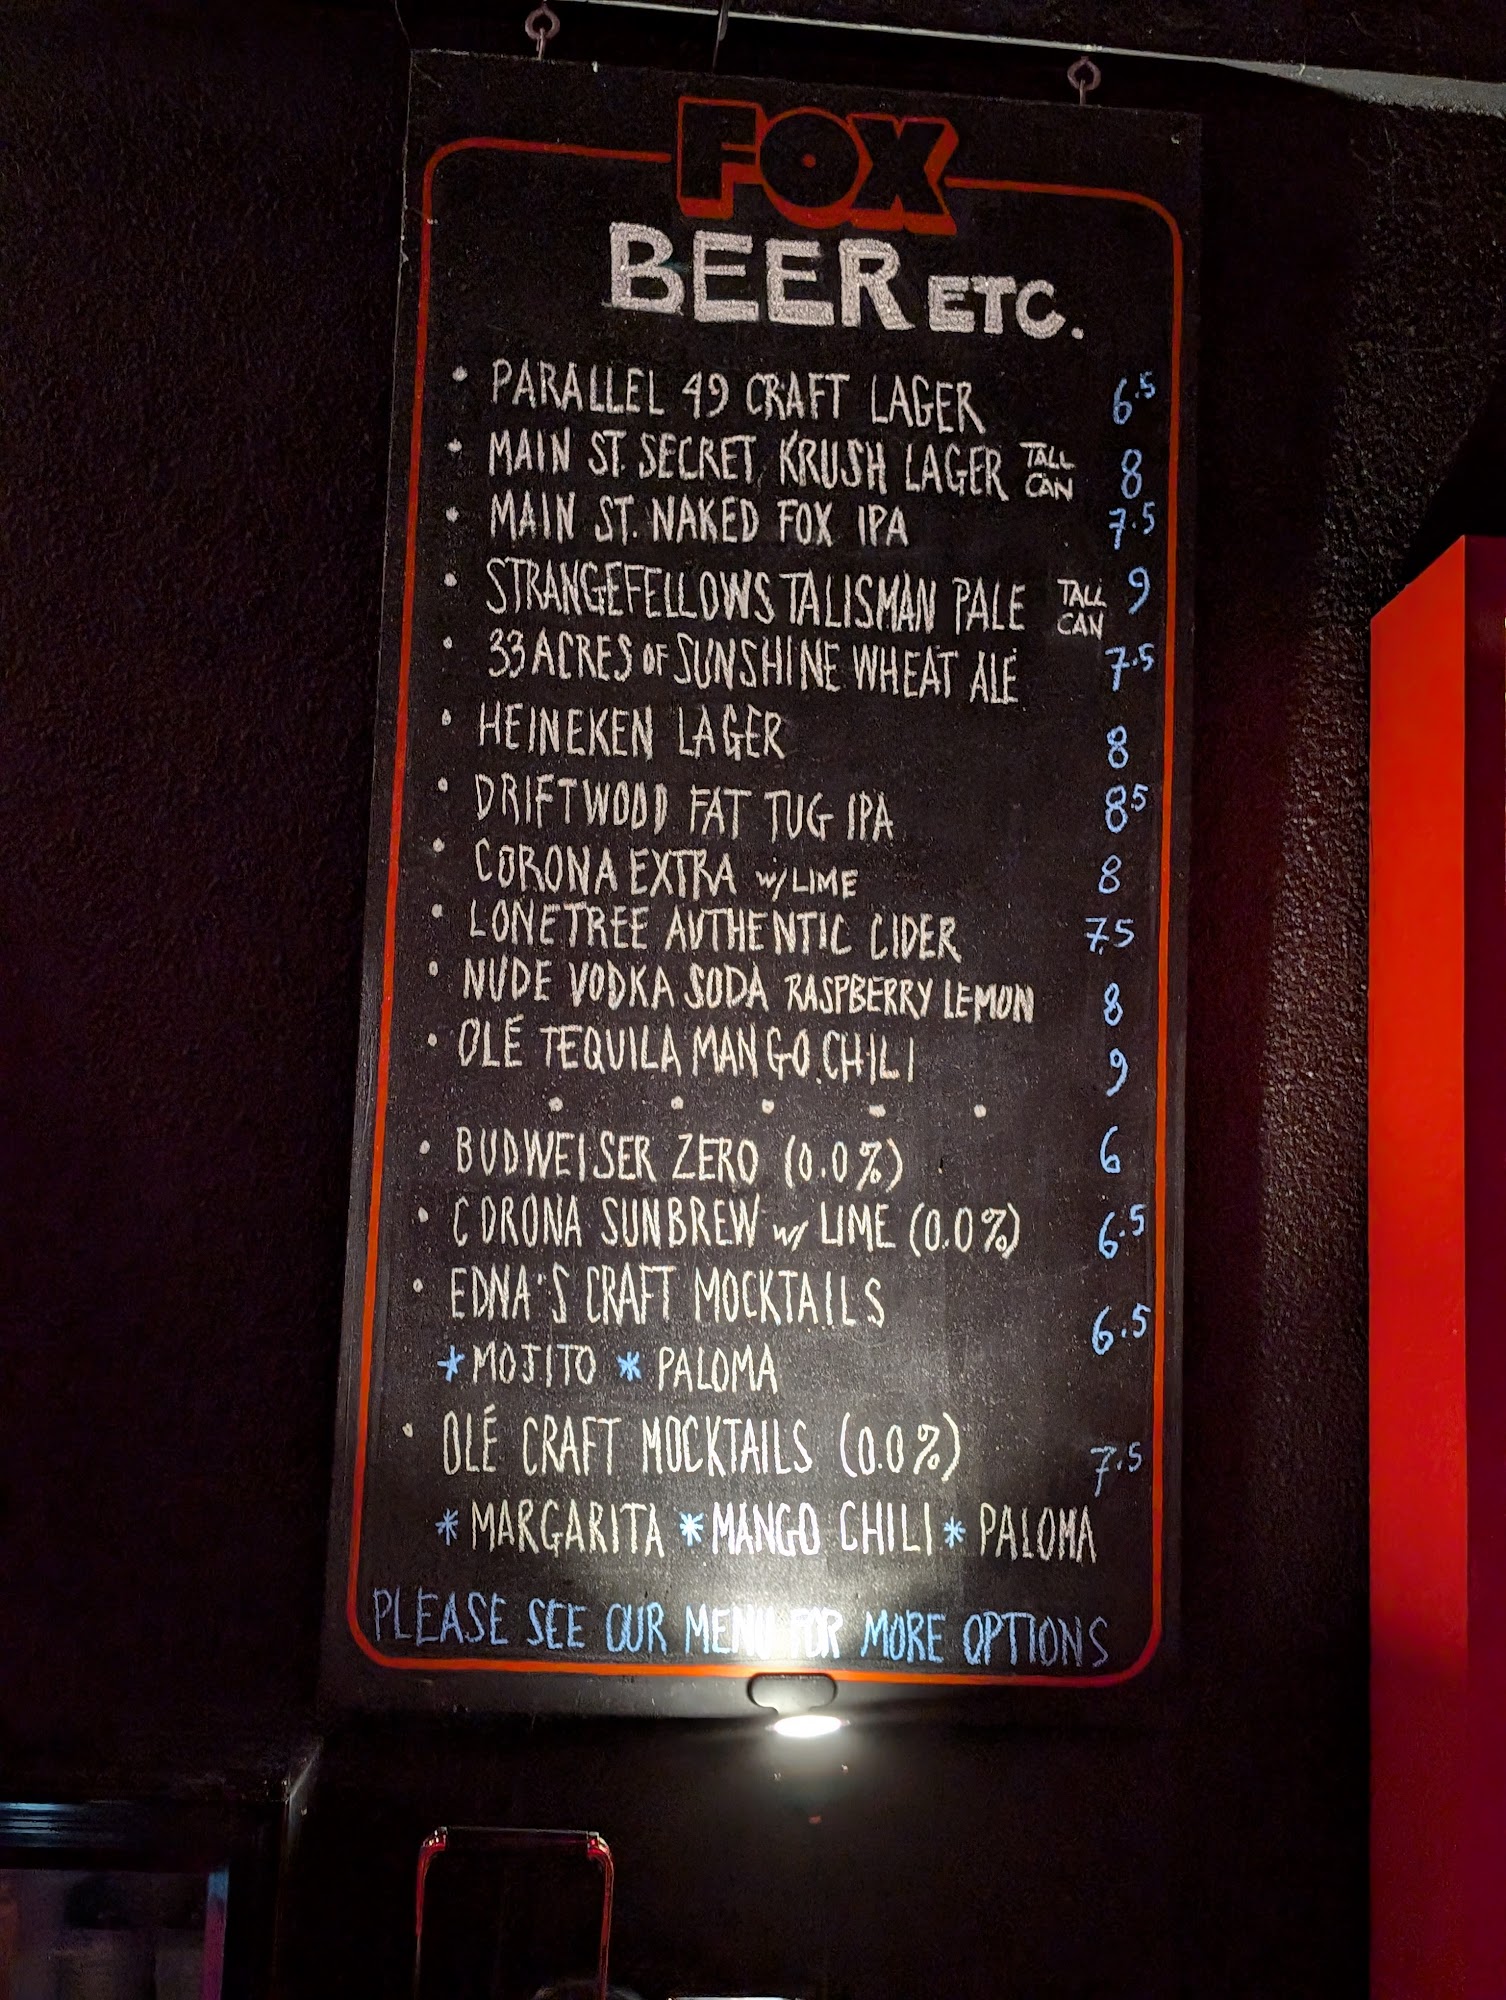 FOX
BEER ETC.
• PARALLEL 49 CRAFT LAGER 6.5
• MAIN ST. SECRET KRUSH LAGER TALL CAN 8
• MAIN ST. NAKED FOX IPA 7.5
• STRANGEFELLOWS TALISMAN PALE TALL CAN 9
• 33 ACRES OF SUNSHINE WHEAT ALE 7.5
• HEINEKEN LAGER 8
• DRIFTWOOD FAT TUG IPA 8.5
• CORONA EXTRA w/ LIME 8
• LONETREE AUTHENTIC CIDER 7.5
• NUDE VODKA SODA RASPBERRY LEMON 8
• OLÉ TEQUILA MANGO CHILI 9
• BUDWEISER ZERO (0.0%) 6
• CORONA SUNBREW w/ LIME (0.0%) 6.5
• EDNA'S CRAFT MOCKTAILS 6.5
* MOJITO * PALOMA
• OLÉ CRAFT MOCKTAILS (0.0%) 7.5
* MARGARITA * MANGO CHILI * PALOMA
PLEASE SEE OUR MENU FOR MORE OPTIONS